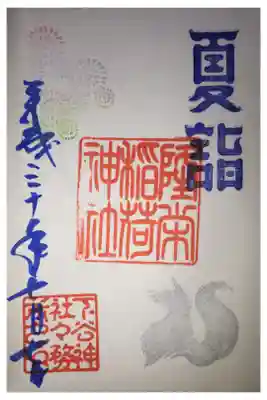 夏詣
隆栄
稲荷
神社
平成三十年七月七日
下谷神
社々務
所之印